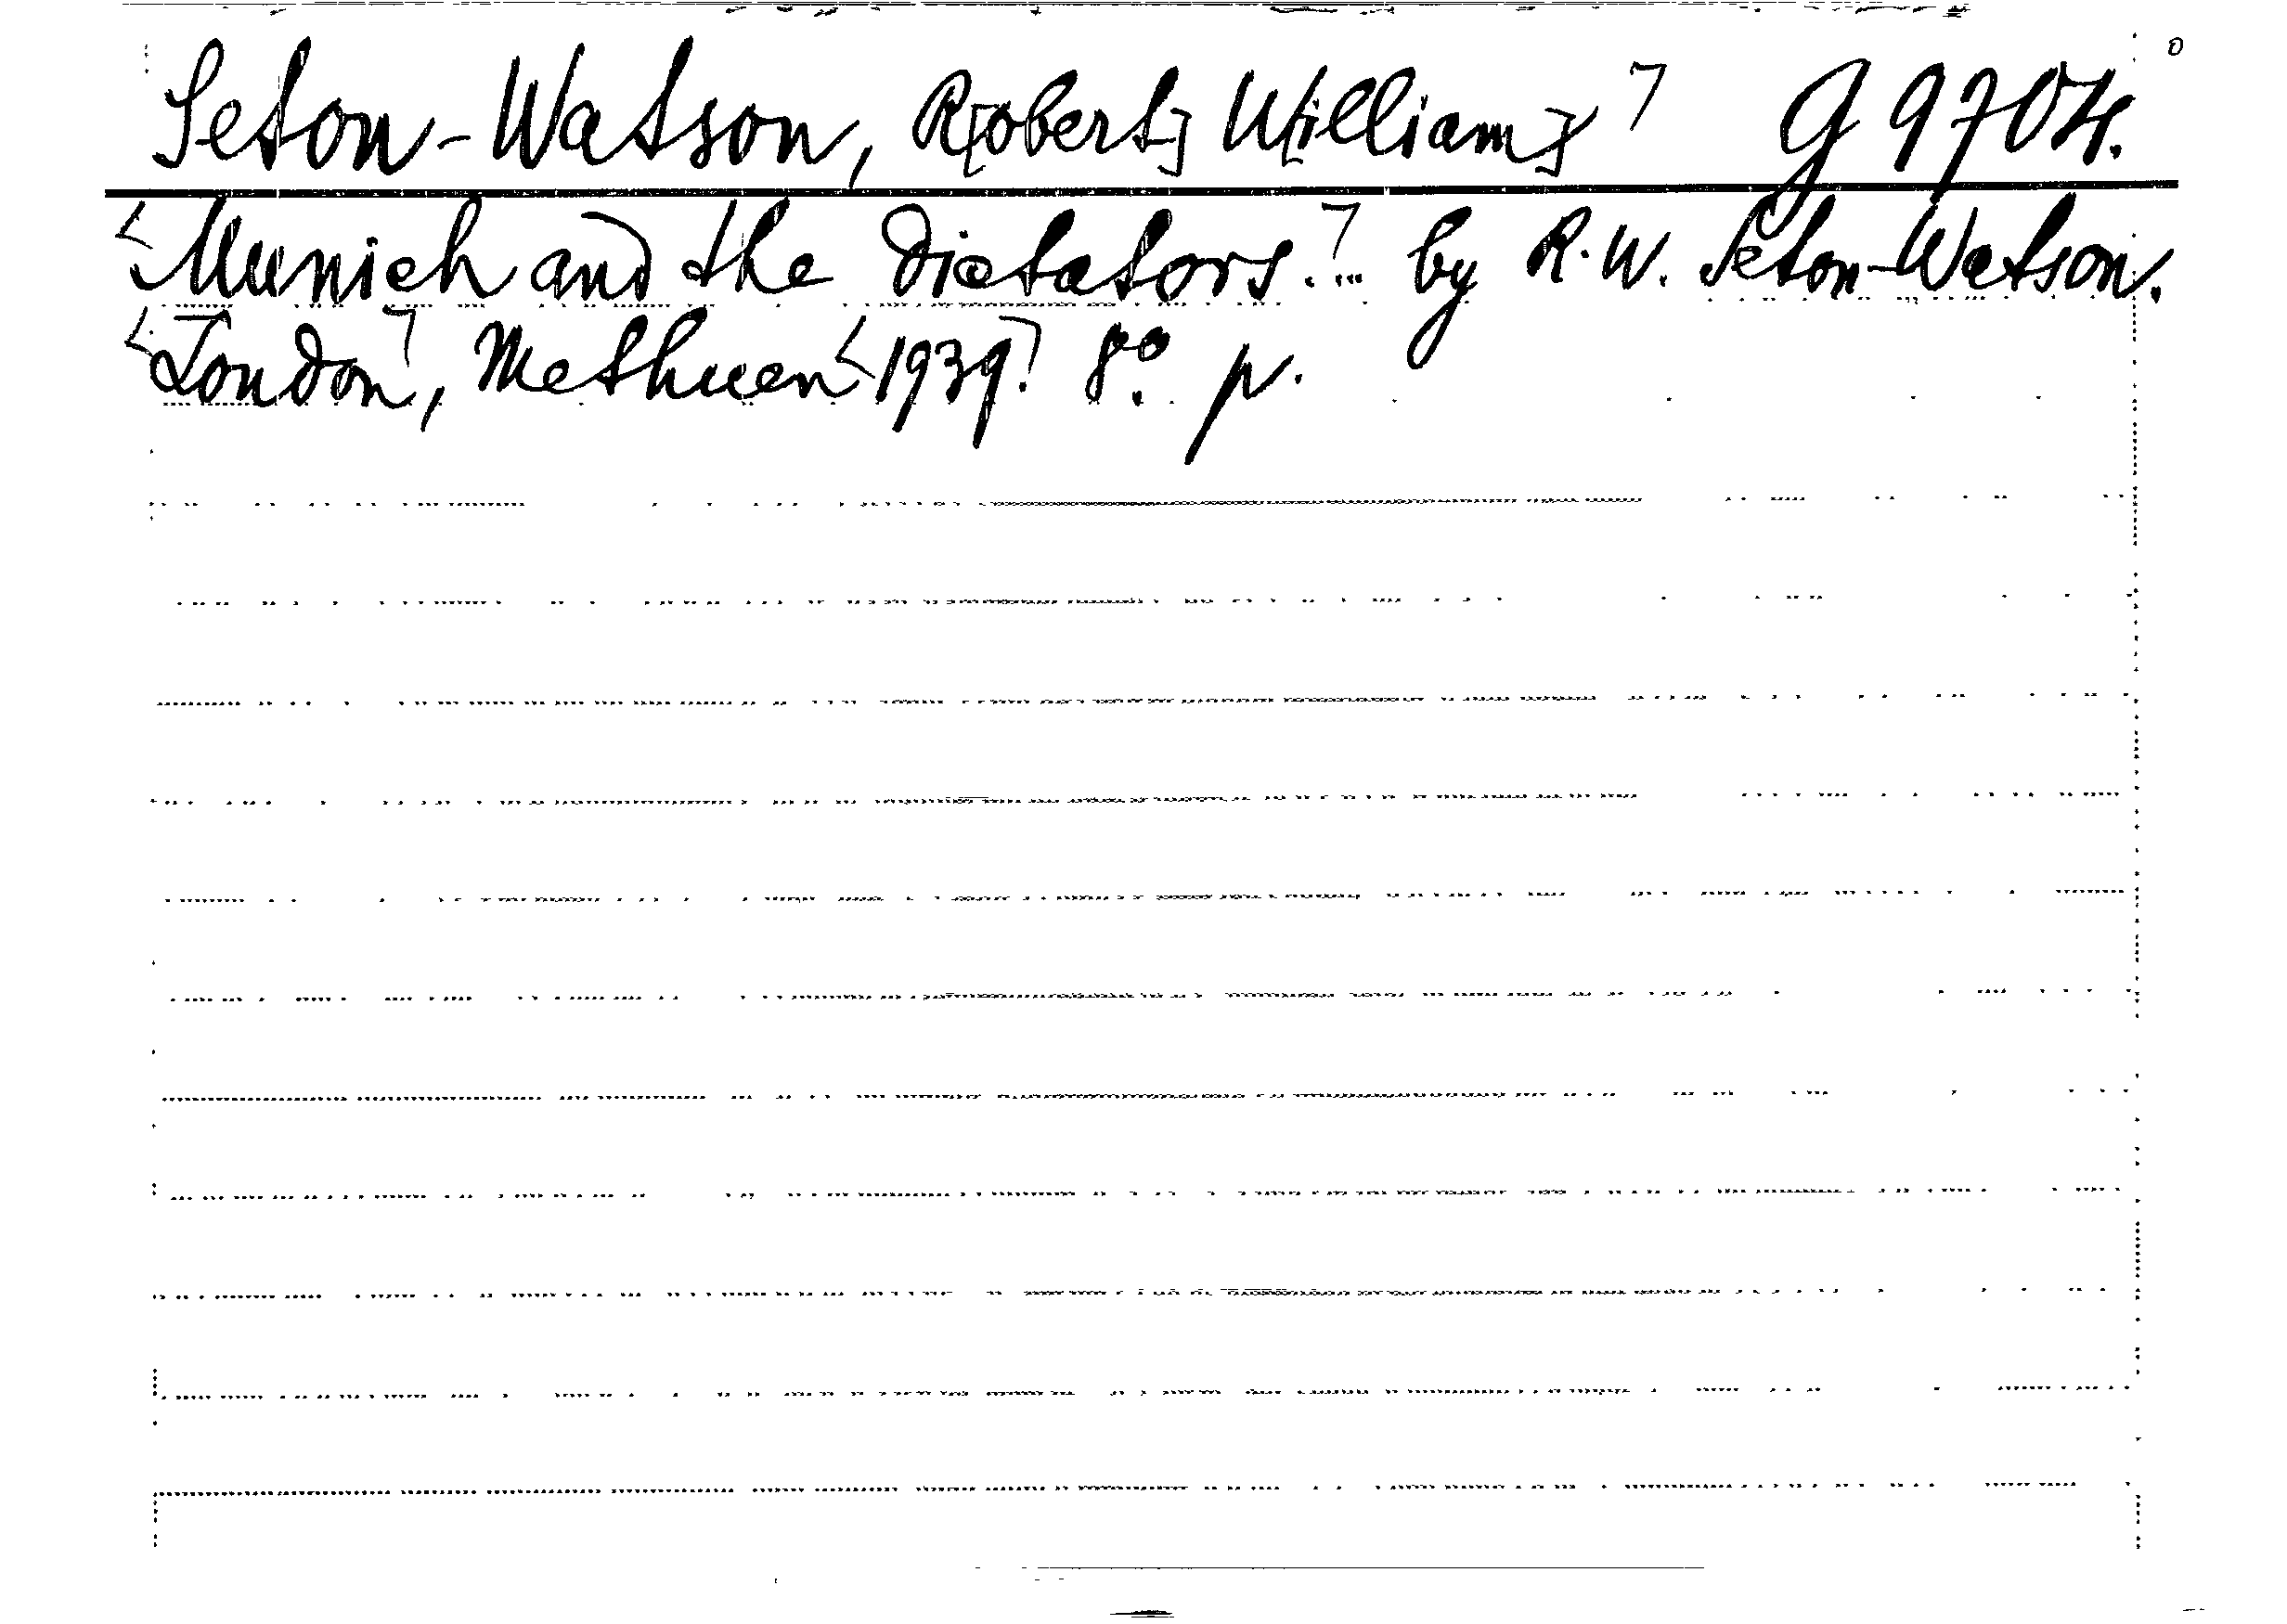 Seton-Watson, R[obert] W[illiam] G 9704.
Munich and the Dictators. ... by R. W. Seton-Watson.
London, Methuen 1939. 8º. p.